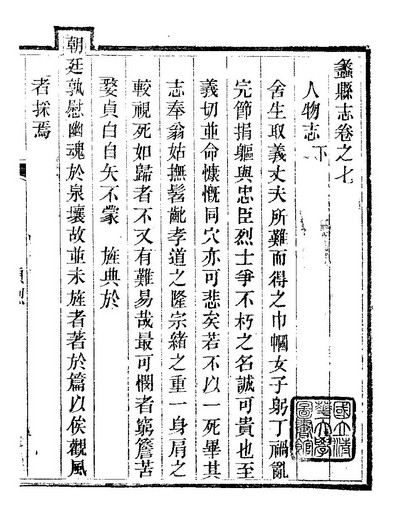 蠡縣志卷之七
人物志下
舍生取義丈夫所難而得之巾幗女子躬丁禍亂
完節捐軀與忠臣烈士爭不朽之名誠可貴也至
義切並命慷慨同穴亦可悲矣若不以一死畢其
志奉翁姑撫髫齓孝道之隆宗緒之重一身肩之
較視死如歸者不又有難易哉最可憫者窮簷苦
嫠貞白自矢不蒙 旌典於
朝廷孰慰幽魂於泉壤故並未旌者著於篇以俟觀風
者採焉
國立清
華大學
圖書館